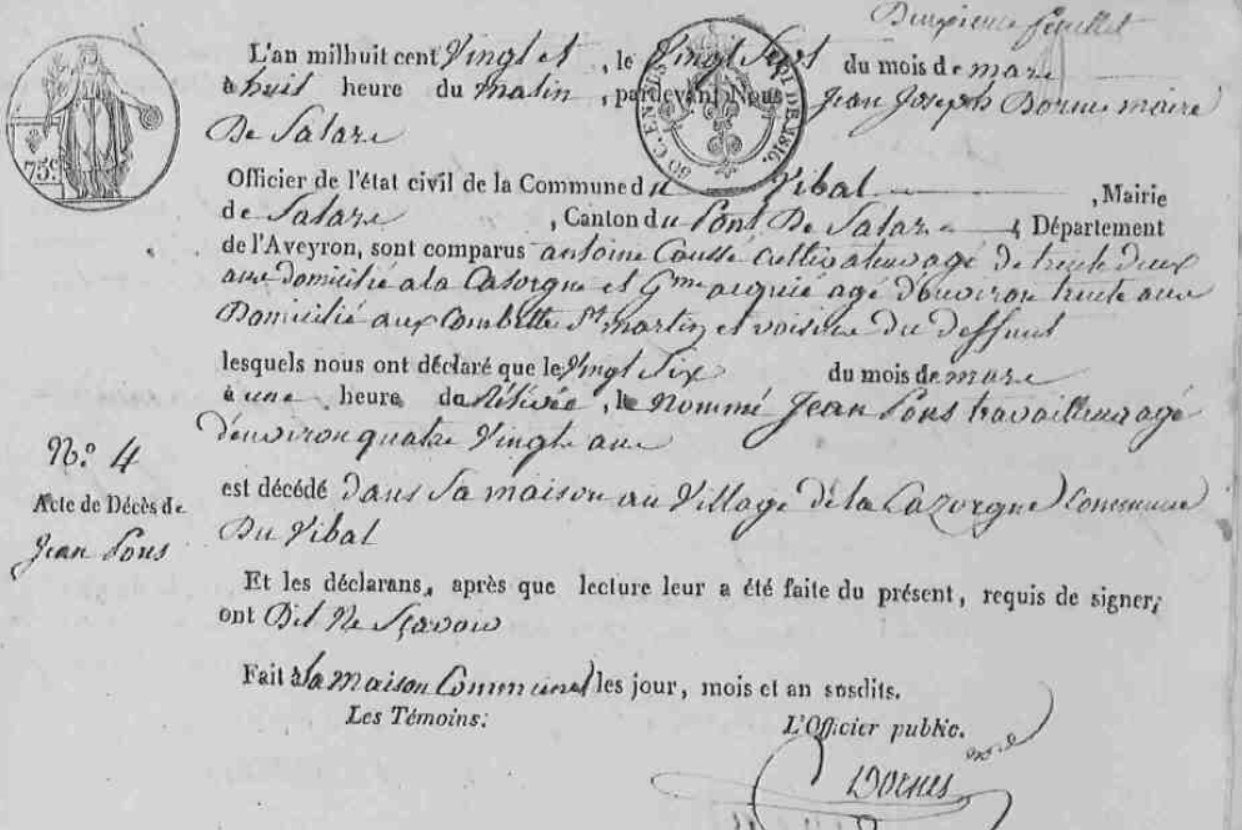 feuillet
L'an milhuit cent Vingt et , le Vingt Sept du mois de mars
à huit heure du Matin , pardevant Nous Jean Joseph Bornes maire
De Salars
Officier de l'état civil de la Commune du Vibal , Mairie
de Salars , Canton du Pont De Salars , Département
de l'Aveyron, sont comparus antoine Caussé Cultivateur agé de trente deux
ans domicilié a la Casorgne et Gme acquié agé d'environ trente ans
Domicilié aux Combettes St martin et voisins Du deffunt
lesquels nous ont déclaré que le Vingt Six du mois de mars
à une heure de Rélévée, le Nommé Jean Pons travailleur agé
d'environ quatre Vingts ans
est décédé Dans Sa maison au Village de la Cazorgne Commune
Du Vibal
Et les déclarans, après que lecture leur a été faite du présent, requis de signer,
ont Dit Ne Sçavoir
Fait à la Maison Communal les jour, mois et an susdits.
Les Témoins: L'Officier public.
Bornes
N.º 4
Acte de Décès de
Jean Pons
75c
50 C. EN SUS
LOI DE 1816.